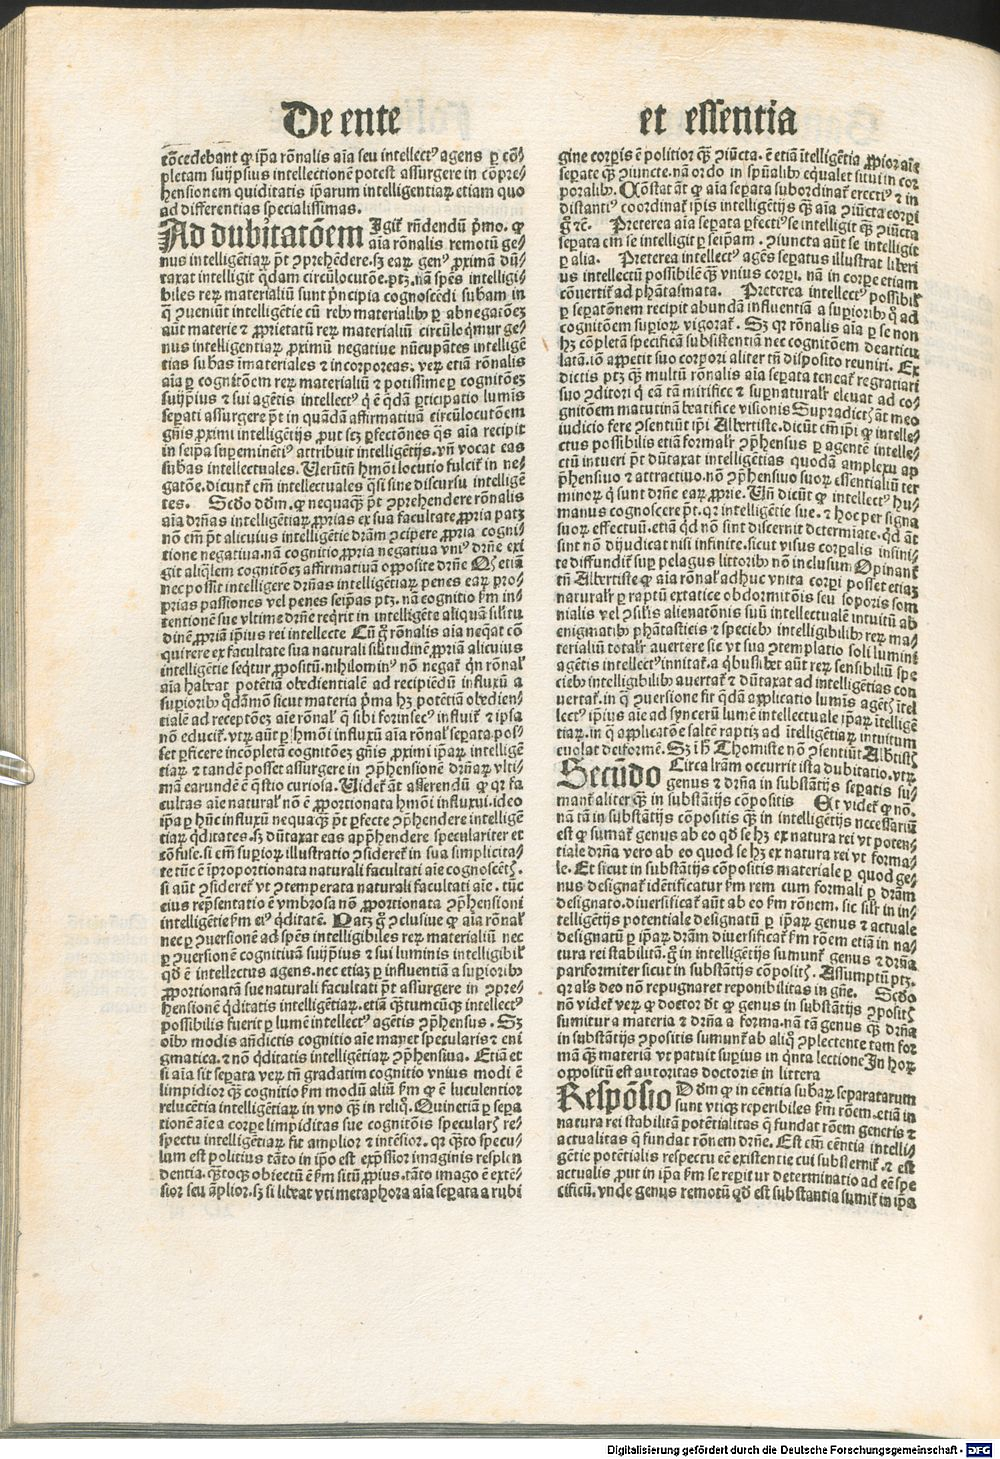 De ente
cōcedebant ꝙ ip̄a rōnalis aīa seu intellectꝰ agens ꝑ cō⸗
pletam suiip̄sius intellectionē potest assurgere in cōpre⸗
hensionem quiditatis ip̄arum intelligentiaꝝ etiam quo
ad differentias specialissimas.
Ad dubitatōem Igit᷑ rn̄dendū p̄mo. ꝙ
aīa rōnalis remotū ge⸗
nus intelligētiaꝝ p̄t ꝯprehēdere. sꝫ eaꝝ genꝰ ꝓximā dū⸗
taxat intelligit q̄dam circūlocutōe. ptꝫ. nā spēs intelligi⸗
biles reꝝ materialiū sunt p̄ncipia cognoscēdi subam in
q̄ ꝯueniūt intelligētie cū rebꝰ materialibꝰ ꝑ abnegatōeꝫ
aūt materie ⁊ ꝓprietatū reꝝ materialiū circūloq̄mur ge⸗
nus intelligentiaꝝ ꝓximū negatiue nūcupātes intelligē
tias subas īmateriales ⁊ incorporeas. veꝝ etiā rōnalis
aīa ꝑ cognitōem reꝝ materialiū ⁊ potissime ꝑ cognitōeꝫ
suiip̄ius ⁊ sui agētis intellectꝰ q̄ ē q̄dā ꝑticipatio lumīs
seꝑati assurgere p̄t in quādā affirmatiuā circūlocutōem
gn̄is ꝓximi intelligētijs ꝓut scꝫ ꝑfectōnes q̄s aīa recipit
in seip̄a suꝑeminētiꝰ attribuit intelligētijs. vn̄ vocat eas
subas intellectuales. Verūtn̄ hmōi locutio fulcit᷑ in ne⸗
gatōe. dicunt᷑ em̄ intellectuales q̄si sine discursu intelligē
tes. Scd̄o dd̄m. ꝙ nequaꝙ̄ p̄t ꝯprehendere rōnalis
aīa drn̄as intelligētiaꝝ ꝓprias ex sua facultate ꝓpria patꝫ
nō em̄ p̄t alicuius intelligētie drām ꝯcipere ꝓpria cogni⸗
tione negatiua. nā cognitio ꝓpria negatiua vniꝰ drn̄e exi
git aliq̄lem cognitōeꝫ affirmatiuā opposite drn̄e Qꝫ etiā
nec possit intelligere drn̄as intelligētiaꝝ penes eaꝝ pro⸗
prias passiones vel penes seip̄as ptꝫ. nā cognitio km̄ in⸗
tentionē sue vltime drn̄e req̄rit in intelligēte aliquā silitu
dinē ꝓpriā ip̄ius rei intellecte Cū g̊ rōnalis aīa neq̄at cō
quirere ex facultate sua naturali silitudinē ꝓpriā alicuius
intelligētie seq̄tur ꝓpositū. nihilominꝰ nō negat᷑ q̄n rōnal᷑
aīa habeat potētiā obedientialē ad recipiēdū influxū a
suꝑioribꝰ q̄dāmō sicut materia p̄ma hꝫ potētiā obedien⸗
tialē ad receptōeꝫ aīe rōnal᷑ q̄ sibi forinsecꝰ influit᷑ ⁊ ip̄sa
nō educit᷑. vtꝝ aūt ꝑ hmōi influxū aīa rōnal᷑ seꝑata pos⸗
set ꝑficere incōpletā cognitōeꝫ gn̄is ꝓximi ip̄aꝝ intelligē
tiaꝝ ⁊ tandē posset assurgere in ꝯp̄hensionē drn̄aꝝ vlti⸗
mā earundē ē q̄stio curiosa. Videt᷑ āt asserendū ꝙ qꝛ fa
cultas aīe natural᷑ nō ē ꝓportionata hmōi influxui. ideo
ip̄a ꝑ hūc influxū nequaꝙ̄ p̄t ꝑfecte ꝯp̄hendere intelligē
tiaꝝ q̄ditates. sꝫ dūtaxat eas app̄hendere speculariter et
cōfuse. si em̄ suꝑioꝝ illustratio ꝯsideret᷑ in sua simplicita⸗
te tūc ē īproportionata naturali facultati aīe cognoscētꝭ.
si aūt ꝯsideret᷑ vt ꝯtemperata naturali facultati aīe. tūc
eius rep̄sentatio ē vmbrosa nō ꝓportionata ꝯp̄hensioni
intelligētie km̄ eiꝰ q̄ditatē. Patꝫ g̊ ꝯclusiue ꝙ aīa rōnal᷑
nec ꝑ ꝯuersionē ad spēs intelligibiles reꝝ materialiū nec
ꝑ ꝯuersionē cognitiuā suiip̄ius ⁊ sui luminis intelligibil᷑
qd̄ ē intellectus agens. nec etiaꝫ ꝑ influentiā a suꝑioribꝰ
ꝓportionatā sue naturali facultati p̄t assurgere in ꝯpre⸗
hensionē q̄ditatis intelligētiaꝝ. etiā q̄ntumcūqꝫ intellectꝰ
possibilis fuerit ꝑ lumē intellectꝰ agētis ꝯp̄hensus. Sꝫ
oībꝰ modis an̄dictis cognitio aīe manet specularis ⁊ eni
gmatica. ⁊ nō q̄ditatis intelligētiaꝝ ꝯp̄hensiua. Etiā et
si aīa sit seꝑata veꝝ tn̄ gradatim cognitio vnius modi ē
limpidior ꝙ̄ cognitio km̄ modū aliū km̄ ꝙ ē luculentior
relucētia intelligētiaꝝ in vno ꝙ̄ in reliq̊. Quinetiā ꝑ sepa
tionē aīe a corꝑe limpiditas sue cognitōis specularꝭ re⸗
spectu intelligētiaꝝ fit amplior ⁊ intēsior. qꝛ q̄nto specu⸗
lum est politius tāto in ip̄o est exp̄ssior imaginis resplen
dentia. q̄ntoqꝫ obiectū ē km̄ sitū ꝓpius. tāto imago ē exte⸗
sior seu āplior. sꝫ si librat vti metaphora aīa seꝑata a rubi
et essentia
gine corꝑis ē politior ꝙ̄ ꝯiūcta. ē etiā ītelligētia ꝓpior aīe
seꝑate ꝙ̄ ꝯiuncte. nā ordo in spūalibꝰ eq̄ualet situi in cor
poralibꝰ. Cōstat āt ꝙ aīa seꝑata subordinat᷑ erectiꝰ ⁊ in
distantiꝰ coordinat᷑ ip̄is intelligētijs ꝙ̄ aīa ꝯiūcta corꝑi
g̊ ⁊c̄. Preterea aīa seꝑata ꝑfectiꝰ se intelligit ꝙ̄ ꝯiūcta
seꝑata em̄ se intelligit ꝑ seip̄am. ꝯiuncta aūt se intelligit
ꝑ alia. Preterea intellectꝰ agēs seꝑatus illustrat liberi
us intellectū possibilē ꝙ̄ vnius corꝑi. nā in corꝑe etiam
cōuertit᷑ ad phātasmata. Preterea intellectꝰ possibil᷑
ꝑ seꝑatōnem recipit abundā influentiā a suꝑioribꝰ q̄ ad
cognitōem suꝑioꝝ vigorat᷑. Sꝫ qꝛ rōnalis aīa ꝑ se non
hꝫ cōpletā specificā subsistentiā nec cognitōem dearticu
latā. iō appetit suo corpori aliter tn̄ disposito reuniri. Ex
dictis ptꝫ ꝙ̄ multū rōnalis aīa seꝑata teneat᷑ regratiari
suo ꝯditori q̄ ea tā mirifice ⁊ suꝑnaturalr̄ eleuat ad co⸗
gnitōem matutinā beatifice visionis Supradictꝭ āt meo
iudicio fere ꝯsentiūt ip̄i Albertiste. dicūt em̄ ip̄i ꝙ intelle⸗
ctus possibilis etiā formalr̄ ꝯp̄hensus ꝑ agentē intelle⸗
ctū intueri p̄t dūtaxat intelligētias quodā amplexu ap
p̄hensiuo ⁊ attractiuo. nō ꝯp̄hensiuo suoꝝ essentialiū ter
minoꝝ q̄ sunt drn̄e eaꝝ ꝓprie. Vn̄ dicūt ꝙ intellectꝰ hu⸗
manus cognoscere p̄t. qꝛ intelligētie sūt. ⁊ hoc per signa
suoꝝ effectuū. etiā qd̄ nō sint discernit determīate. qd̄ āt
sint nō dijudicat nisi infinite. sicut visus corꝑalis infini⸗
te diffundit᷑ suꝑ pelagus littoribꝰ nō inclusum Opinant᷑
tn̄ Albertiste ꝙ aīa rōnal᷑ adhuc vnita corꝑi posset etiaꝫ
naturalr̄ ꝑ raptū extatice obdormitōis seu soporis som
nialis vel ꝯsilis alienatōnis suū intellectualē intuitū ab
enigmatibꝰ phātasticis ⁊ speciebꝰ intelligibilibꝰ reꝝ ma⸗
terialiū totalr̄ auertere sic vt sua ꝯtemplatio soli lumini
agētis intellectꝰ innitat᷑. a q̄busl ibet aūt reꝝ sensibiliū spe
ciebꝰ intelligibilibꝰ auertat᷑ ⁊ dūtaxat ad intelligētias con
uertat᷑. in q̄ ꝯuersione fit q̄dā applicatio lumīs agētꝭ ītel
lectꝰ ip̄ius aīe ad syncerū lumē intellectuale ip̄aꝝ ītelligē
tiaꝝ. in q̄ applicatōe saltē raptiꝫ ad ītelligētiaꝝ intuitum
euolat deiformē. Sꝫ ī h̄ Thomiste nō ꝯsentiūt Albtistꝭ
Secūdo Circa lrām occurrit ista dubitatio. vtꝝ
genus ⁊ drn̄a in substātijs seꝑatis su⸗
mant᷑ aliter ꝙ̄ in substātijs cōpositis Et videt᷑ ꝙ nō.
nā tā in substātijs cōpositis ꝙ̄ in intelligētijs necessariū
est ꝙ sumat᷑ genus ab eo qd̄ se hꝫ ex natura rei vt poten⸗
tiale drn̄a vero ab eo quod se hꝫ ex natura rei vt forma⸗
le. Et sicut in substātijs cōpositis materiale ꝑ quod ge⸗
nus designat᷑ identificatur km̄ rem cum formali ꝑ drām
designato. diuersificat᷑ aūt ab eo km̄ rōnem. sic silr̄ in in⸗
telligētijs potentiale designatū ꝑ ip̄aꝝ genus ⁊ actuale
designatū ꝑ ip̄aꝝ drām diuersificat᷑ km̄ rōem etiā in na⸗
tura rei stabilitā. g̊ in intelligētijs sumunt᷑ genus ⁊ drn̄a
pariformiter sicut in substātijs cōpositꝭ. Assumptū ptꝫ.
qꝛ als̄ deo nō repugnaret reponibilitas in gn̄e. Scd̄o
nō videt᷑ veꝝ ꝙ doctor dt̄ ꝙ genus in substātijs ꝯpositꝭ
sumitur a materia ⁊ drn̄a a forma. nā tā genus ꝙ̄ drn̄a
in substātijs ꝯpositis sumunt᷑ ab aliq̊ ꝯplectente tam for
mā ꝙ̄ materiā vt patuit suꝑius in q̄nta lectione In hoꝝ
oppositū est autoritas doctoris in littera
Respōsio Dd̄m ꝙ in eēntia subaꝝ seꝑaratarum
sunt vtiqꝫ reperibiles km̄ rōem. etiā in
natura rei stabilitā potētialitas q̄ fundat rōem generis ⁊
actualitas q̄ fundat rōnem drn̄e. Est em̄ eēntia intelli⸗
gētie potētialis respectu eē existentie cui substernit᷑. ⁊ est
actualis ꝓut in ip̄a km̄ se reꝑitur determinatio ad eē spe
cificū. vnde genus remotū qd̄ est substantia sumit᷑ in ip̄a
Digitalisierung gefördert durch die Deutsche Forschungsgemeinschaft - DFG